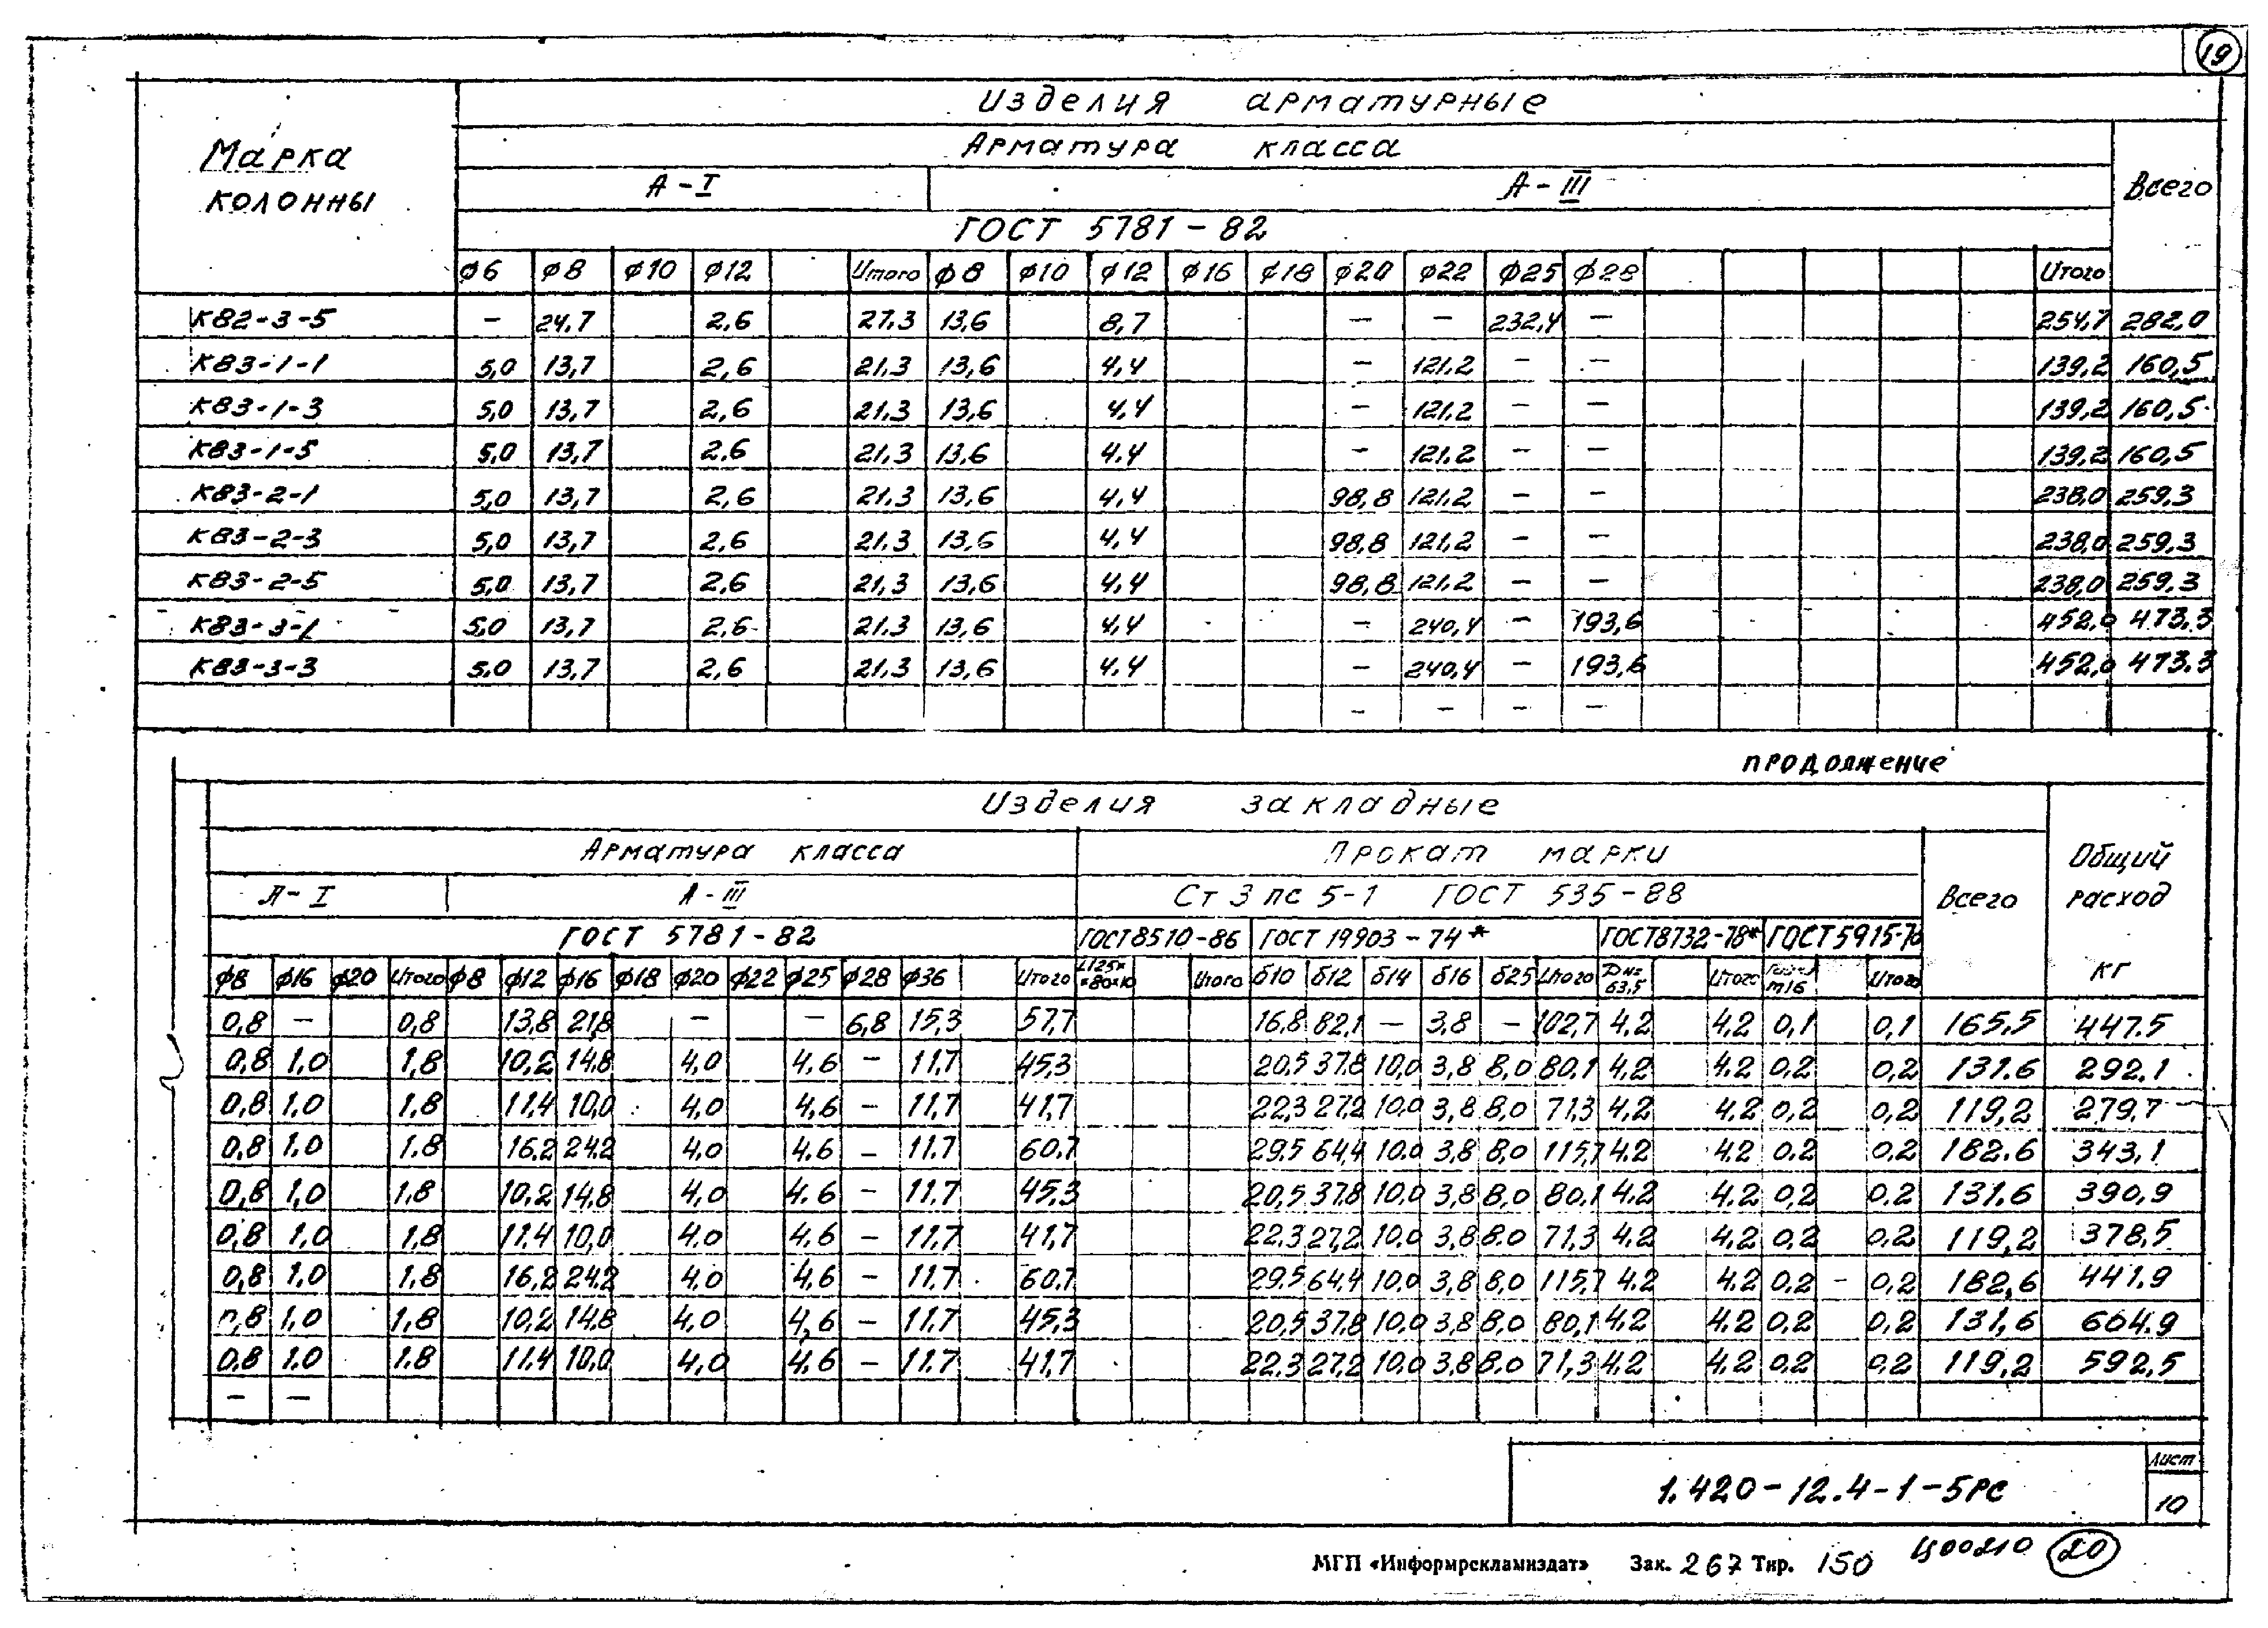 19
Изделия арматурные
Марка колонны
Арматура класса
Всего
А-I А-III
ГОСТ 5781-82
ф6 ф8 ф10 ф12 Итого ф8 ф10 ф12 ф16 ф18 ф20 ф22 ф25 ф28 Итого
К82-3-5 – 24,7 2,6 27,3 13,6 8,7 – – 232,4 – 254,7 282,0
К83-1-1 5,0 13,7 2,6 21,3 13,6 4,4 – 121,2 – – 139,2 160,5
К83-1-3 5,0 13,7 2,6 21,3 13,6 4,4 – 121,2 – – 139,2 160,5
К83-1-5 5,0 13,7 2,6 21,3 13,6 4,4 – 121,2 – – 139,2 160,5
К83-2-1 5,0 13,7 2,6 21,3 13,6 4,4 98,8 121,2 – – 238,0 259,3
К83-2-3 5,0 13,7 2,6 21,3 13,6 4,4 98,8 121,2 – – 238,0 259,3
К83-2-5 5,0 13,7 2,6 21,3 13,6 4,4 98,8 121,2 – – 238,0 259,3
К83-3-1 5,0 13,7 2,6 21,3 13,6 4,4 – 240,4 – 193,6 452,0 473,3
К83-3-3 5,0 13,7 2,6 21,3 13,6 4,4 – 240,4 – 193,6 452,0 473,3
– – – –
продолжение
Изделия закладные
Арматура класса Прокат марки
Общий расход кг
А-I А-III Ст3пс5-1 ГОСТ 535-88 Всего
ГОСТ 5781-82 ГОСТ 8510-86 ГОСТ 19903-74* ГОСТ 8732-78* ГОСТ 5915-70
ф8 ф16 ф20 Итого ф8 ф12 ф16 ф18 ф20 ф22 ф25 ф28 ф36 Итого L125××80×10 Итого б10 б12 б14 б16 б25 Итого 63,5 Итого м16 Итого
0,8 – 0,8 13,8 21,8 – – 6,8 15,3 57,7 16,8 82,1 – 3,8 – 102,7 4,2 4,2 0,1 0,1 165,5 447,5
0,8 1,0 1,8 10,2 14,8 4,0 4,6 – 11,7 45,3 20,5 37,8 10,0 3,8 8,0 80,1 4,2 4,2 0,2 0,2 131,6 292,1
0,8 1,0 1,8 11,4 10,0 4,0 4,6 – 11,7 41,7 22,3 27,2 10,0 3,8 8,0 71,3 4,2 4,2 0,2 0,2 119,2 279,7
0,8 1,0 1,8 16,2 24,2 4,0 4,6 – 11,7 60,7 29,5 64,4 10,0 3,8 8,0 115,7 4,2 4,2 0,2 0,2 182,6 343,1
0,8 1,0 1,8 10,2 14,8 4,0 4,6 – 11,7 45,3 20,5 37,8 10,0 3,8 8,0 80,1 4,2 4,2 0,2 0,2 131,6 390,9
0,8 1,0 1,8 11,4 10,0 4,0 4,6 – 11,7 41,7 22,3 27,2 10,0 3,8 8,0 71,3 4,2 4,2 0,2 0,2 119,2 378,5
0,8 1,0 1,8 16,2 24,2 4,0 4,6 – 11,7 60,7 29,5 64,4 10,0 3,8 8,0 115,7 4,2 4,2 0,2 – 0,2 182,6 441,9
0,8 1,0 1,8 10,2 14,8 4,0 4,6 – 11,7 45,3 20,5 37,8 10,0 3,8 8,0 80,1 4,2 4,2 0,2 0,2 131,6 604,9
0,8 1,0 1,8 11,4 10,0 4,0 4,6 – 11,7 41,7 22,3 27,2 10,0 3,8 8,0 71,3 4,2 4,2 0,2 0,2 119,2 592,5
– –
1.420-12.4-1-5РС
Лист
10
МГП «Информрекламиздат» Зак. 267 Тир. 150 Ц00210 20